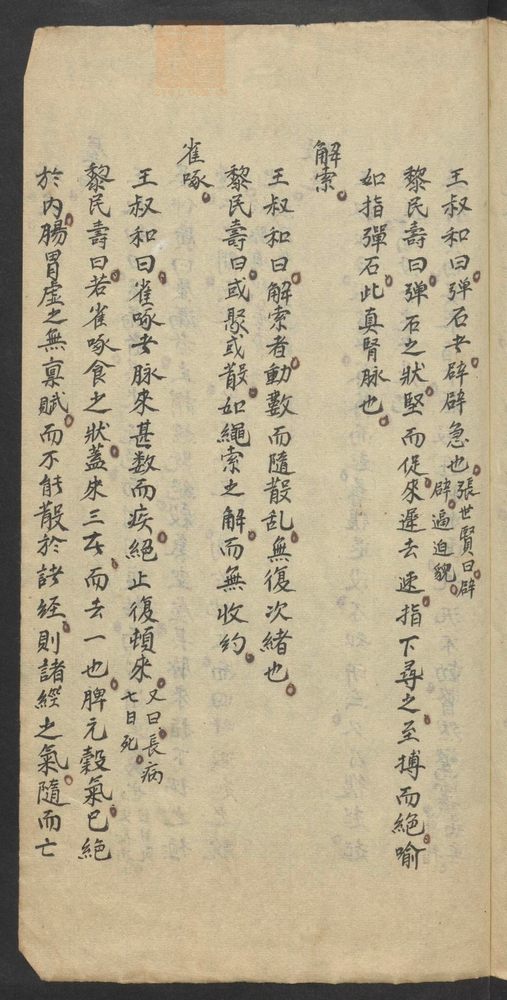 王叔和曰弹石者辟辟急也張世賢曰辟辟逼迫貌
黎民壽曰弹石之狀堅而促來遲去速指下尋之至搏而絕喻
如指彈石此真腎脉也
解索
王叔和曰解索者動數而隨散乱無復次緒也
黎民壽曰或聚或散如繩索之解而無收約
雀啄
王叔和曰雀啄者脉來甚数而疾絕止復頓來又曰長病七日死
黎民壽曰若雀啄食之狀蓋來三而去一也脾元穀氣已絕
於内腸胃虛之無稟賦而不能散於諸經則諸經之氣隨而亡